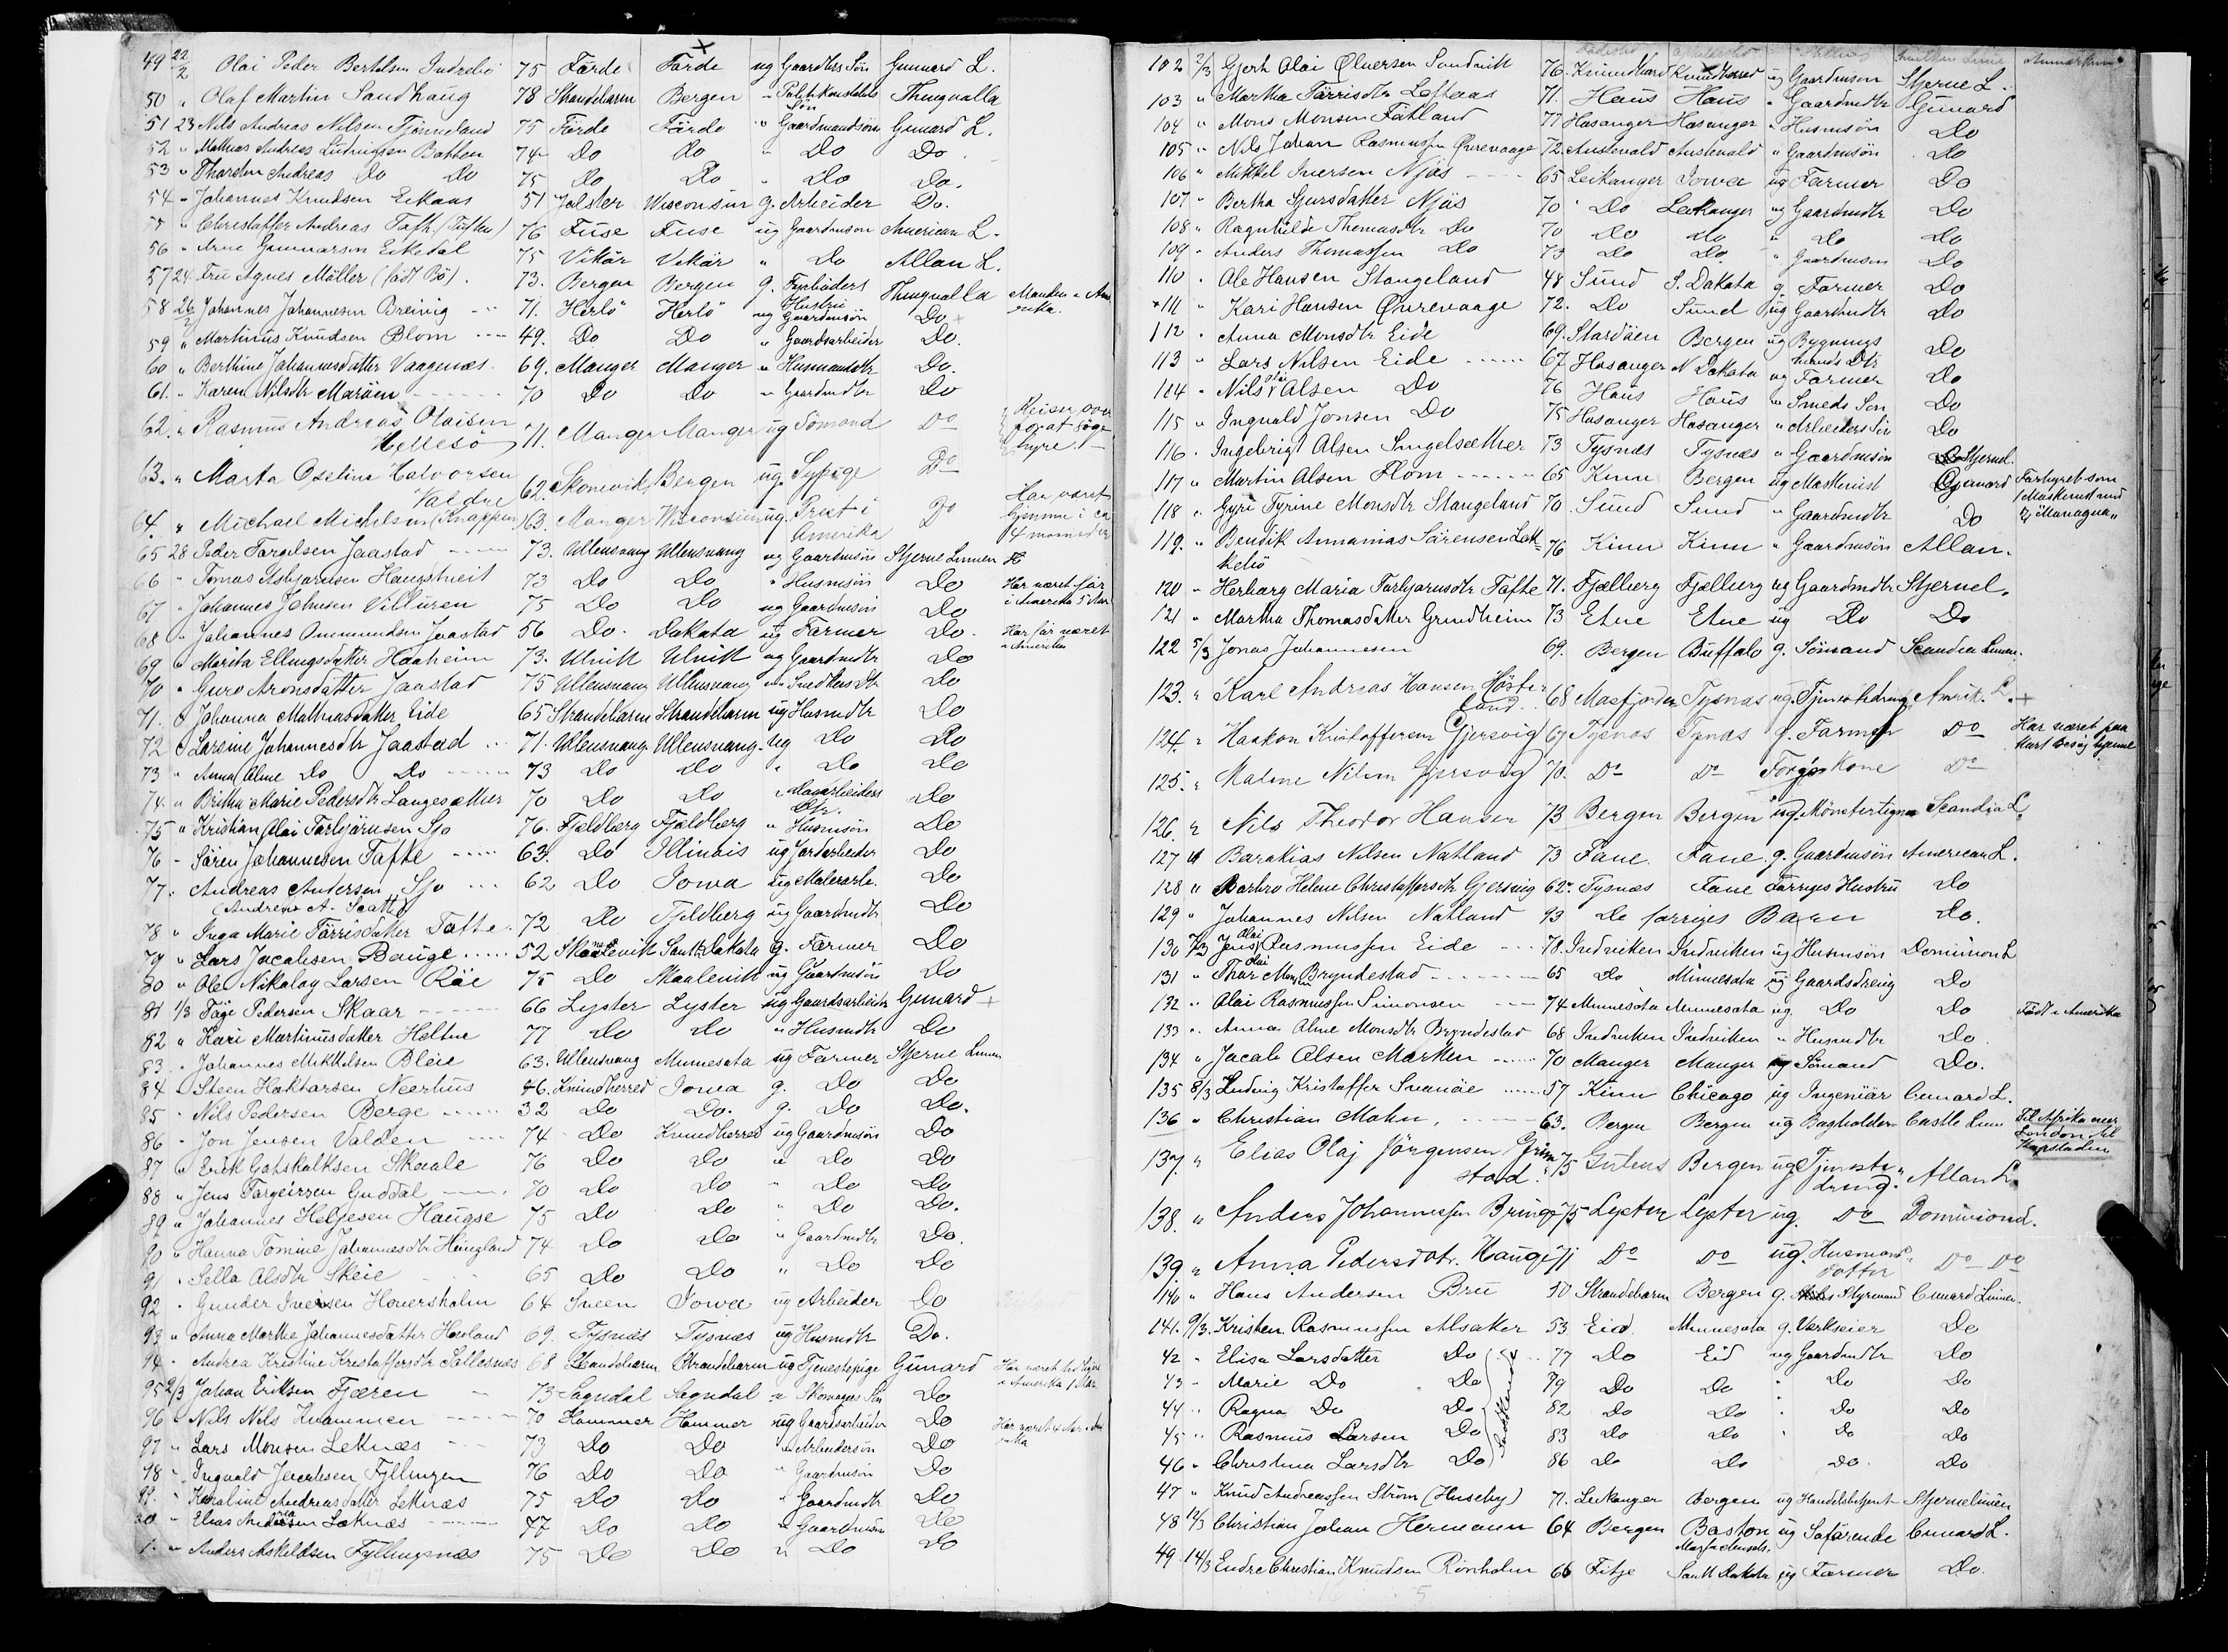 49 22/2 Olai Peder Bertelsen Indrebö 75 Förde Förde ug Gaardbrs Sön Gunnard L.
50 " Olaf Martin Sandhaug 78 Strandebarm Bergen " Politikonstabels Sön Thingvalla
51 23 Nils Andreas Nilsen Tjönneland 75 Förde Förde " Gaardmandssön Gunard L.
52 " Mathias Andreas Ludvigsen Batten 74 Do Do " Do Do
53 " Thorsten Andreas Do Do 75 Do Do " Do Do.
54 " Johannes Knudsen Eikaas 51 Jölster Wisconsin g. Arbeider Do.
" Christoffer Andreas Tofte (Tuften) 76 Fuse Fuse ug Gaardmsön American L.
56 " Arne Gunnarson Eikedal 75 Vikör Vikör " Do Allan L.
57 24 Fru Agnes Möller (född Bö). 73. Bergen Bergen g. Fyrböders Hustru Thingvalla Manden i Amerika.
58 26/2 Johannes Johannesen Breivig 71. Herlö Herlö ug Gaardmsön Do +
59 " Martinus Knudsen Blom 49. Do Do " Gaardsarbeider Do.
60 " Berthine Johannesdatter Vaagenæs. 69. Manger Manger " Husmandsdtr Do.
61. " Karen Nilsdtr Maröen 70 Do Do " Gaardmdtr Do
62. " Rasmus Andreas Olaisen Hillesö 71. Manger Manger ug Sömand Do Reiser over for at söge hyre.
63. " Marta Oseline Halvorsen Valdre 62. Skonevik Bergen ug. Sypige Do
64. " Michael Michelsen (Knappen) 63. Manger Wisconsin ug. Prest i Amerika Do Har været hjemme i ca 4 maaneder
65 28 Peder Torgilsen Jaastad 73. Ullensvang Ullensvang ug Gaardmsön Stjerne Linnen
66 " Tomas Asbjörnsen Haugstveit 73 Do Do " Husmsön Do Har været för i Amerika 5 Aar
67 " Johannes Johnsen Villuren 75 Do Do ug Gaardmsön Do
68 " Johannes Ommundsen Jaastad 56 Do. Dakota ug Farmer Do. Har för været i Amerika
69 " Marita Ellingsdatter Haaheim 73. Ulvik Ulvik ug Gaardmdtr Do
70 " Guro Aronsdatter Jaastad 75 Ullensvang Ullensvang " Snedkersdtr Do
71. " Johanna Mathiasdatter Eide 65 Strandebarm Strandebarm ug Husmdtr Do
72 " Larsine Johannesdtr Jaastad 71. Ullensvang Ullensvang. ug Do Do
73 " Anna Oline Do Do 73 Do Do " Do Do
74 " Britha Marie Pedersdtr Langesæther 70 Do Do " Dagarbeiders Dtr. Do
75 " Kristian Olai Torbjörnsen Sjo 76. Fjeldberg Fjeldberg " Husmsön Do
76 " Sören Johannesen Tofte 63. Do Illinois ug Jordarbeider Do
77. Andreas Andersen Sjo (Andrew A. Scatti) 62 Do Iowa ug Malerarb. Do
78 " Inga Marie Törrisdatter Tofte 72 Do Fjeldberg ug Gaardmdtr Do
79 " Lars Jacobsen Bauge 52 Skaanevik South Dakota g. Farmer Do
80 " Ole Nikolay Larsen Röe 75 Do Skaalevik ug Gaardmsön Do
81 1/3 Töge Pedersen Skaar 66 Lyster Lyster ug Gaardsarbeider Gunard +
82 " Kari Martinusdatter Holtne 77 Do Do " Husmdtr Do
83. " Johannes Mikkelsen Bleie 63. Ullensvang Minnesota ug Farmer Stjerne Linnen
84 " Steen Haktorsen Neerhus 46. Kvindherred Iowa g. Do Do
85 " Nils Pedersen Berge 32 Do Do. g. Do Do.
86 " Jon Jensen Valden 74 Do Kvindherred ug Gaardmsön Do
87 " Erik Gotskalksen Skaale 76 Do Do " Do Do
88 " Jens Torgeirsen Guddal 70 Do Do " Do Do
89 " Johannes Helgesen Haugse 75 Do Do " Do Do.
90 " Hanna Tomine Johannesdtr Haugland 74 Do Do " Gaardmdtr Do.
91 " Sella Olsdtr Skeie 65 Do Do " Do Do
92 " Gunder Iversen Hoversholm 64 Sveen Iowa ug Arbeider Do
93 " Anna Marthe Johannesdatter Hovland 69. Tysnæs Tysnæs ug Husmdtr Do.
94 " Andrea Kristine Kristoffersdtr Sallesnæs 68 Strandebarm Strandebarm ug Tjenestepige Gunard Har været tidligere i Amerika 1 Aar
95 2/3 Johan Eriksen Fjæren 73 Sogndal Sogndal " Skomagers Sön Do
96 " Nils Nils Kvammen 70 Hammer Hammer ug Gaardsarbeider Do
97 " Lars Monsen Leknæs 73 Do Do " Arbeidersön Do
98 " Ingvald Jacobsen Fyllingen 76 Do Do " Gaardmsön Do
99. " Karoline Andreasdatter Leknæs 75 Do Do " Gaardmdtr Do
" Elias Andersen Leknæs 77 Do Do " Gaardmsön Do
1. " Anders Askildsen Fyllingsnæs 75 Do Do " Do Do
102 2/3 Gjert Olai Olversen Sandvik 76. Kvindherred Kvindherred ug Gaardmsön Stjerne L.
103 " Martha Törrisdtr Loftaas 71. Haus Haus " Gaardmdtr Gunard
104 " Mons Monsen Fotland 77 Hosanger Hosanger " Husmsön Do
105 " Nils Johan Rasmussen Övrevaage 72. Austevold Austevold " Gaardmsön Do
106 " Mikkel Iversen Njøs 65 Leikanger Iowa ug Farmer Do
107 " Bertha Sjursdatter Njøs 70 Do Leikanger ug Gaardmdtr Do
108 " Ragnhilde Thomasdtr Do 70 Do Do " Do Do
109 " Anders Thomassen Do 73 Do Do. " Gaardmsön Do
110 " Ole Hansen Stangeland 48 Sund S. Dakota g Farmer Do
+111 " Kari Hansen Övrevaage 72. Do Sund ug Gaardmdtr Do
112 " Anna Monsdtr Eide 69. Stordöen Bergen ug Bygningsmands Dtr Do
113 " Lars Nilsen Eide 67 Hosanger N Dakota ug Farmer Do
114 " Nils Olai Olsen Do 76 Haus Haus " Smeds Sön Do
115 " Ingvald Jonsen Do 75 Hosanger Hosanger " Arbeiders Sön Do
116. Ingebrigt Olsen Singelsæther 73 Tysnæs Tysnæs " Gaardmsön Stjernel.
117 " Martin Olsen Flom 65 Kinn Bergen ug Maskinist Gunard
118 " Gyri Tyrine Monsdtr Stangeland 70 Sund Sund " Gaardmdtr Do
119. " Bendik Annanias Sörensen 76 Kinn Kinn " Gaardmsön Allan.
120 " Herborg Maria Torbjörnsdtr Tofte 71. Fjelberg Fjelberg ug Gaardmdtr Stjernel.
121 " Martha Thomasdatter Grindheim 73 Etne Etne ug Do Do
122 5/3 Jonas Johannesen 69. Bergen Buffalo g. Sömand Scandia Linnen.
123. " Karl Andreas Hansen Høsteland 68 Masfjorden Tysnæs ug. Tjenestedreng Amrik. L. +
124 " Haakon Kristoffersen Gjersvig 67 Tysnæs Tysnæs g. Farmer Do Har været paa kort besög hjemme
125. " Malene Nilsen Gjersvig 70. Do Do Forges Kone Do
126. " Nils Theodor Hansen 73 Bergen Bergen ug. Mönstertegner Scandia L.
127 4 Barakias Nilsen Natland 73 Fane. Fane g. Gaardmsön American L.
128 " Barbro Helene Christoffersdtr Gjersvig 62. Tysnæs Fane Forriges Hustru Do
129 " Johannes Nilsen Natland 93 Do forriges Barn Do.
130 7/3 Jens Olai Rasmussen Eide 78. Indviken Indviken ug Husmsön Dominion L
131 " Thor Olai Bryndestad 65 Do Minnesota ug Gaardsdreng Do
132 " Olai Rasmussen Simonsen 74 Minnesota Minnesota ug Do Do Född i Amerika
133 " Anna Oline Monsdtr Bryndestad 68 Indviken Indviken " Husmdtr Do
134 " Jacob Olsen Marken 70 Manger Manger ug Sömand Do.
135 8/3 Ludvig Kristoffer Svanöe 57 Kinn Chicago ug Ingeniör Cunard L.
136 " Christian Mohn. 63. Bergen Bergen ug Bogholder Castle Linn Til Afrika over London til Kapstaden
137. " Elias Olaj Jörgensen Grimstad. 75 Gulens Bergen ug Tjenestedreng. Allan L.
138. " Anders Johannessen Bringe 75 Lyster Lyster ug. Do Dominionl.
139. " Anna Pedersdotr. Hauge 71 Do Do ug. Husmandsdotter Do Do
140 " Hans Andersen Bru 50 Strandebarm Bergen g. Styrmand Cunard Linnen.
141. 9/3. Kristen Rasmussen Alsaker 53 Eid Minnesota g. Værkseier Do
42 " Elisa Larsdatter Do 77 Do Eid ug Gaardmdtr Do
43 " Marie Do Do 79 Do Do " Do Do
44 " Ragna Do Do 82 Do Do " Do Do
45 " Rasmus Larsen Do 83 Do Do " Do Do
46 " Christina Larsdtr Do 86 Do Do Do. Do
47 " Knud Andreassen Ström (Huseby) 71. Leikanger Bergen ug Handelsbetjent Stjernelinien
48 12/3 Christian Johan Hermann 64 Bergen Boston ug Söfarende Cunard L.
49 14/3 Endre Christian Knudsen Rönholm 66 Fitje South Dakota ug Farmer Do.